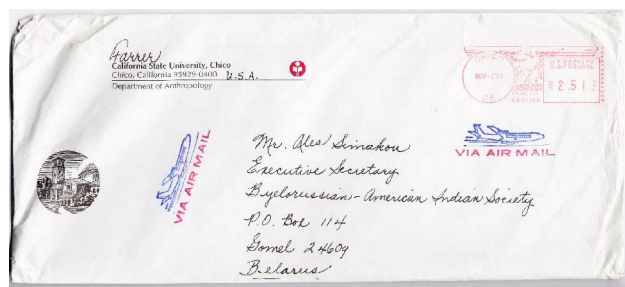 Farrer
California State University, Chico
Chico, California 95929-0400 U.S.A.
Department of Anthropology
CHICO
NOV
CA
U.S. POSTAGE
2.51
VIA AIR MAIL
VIA AIR MAIL
Mr. Ales Simakou
Executive Secretary
Byelorussian-American Indian Society
P.O. Box 114
Gomel 2460g
Belarus